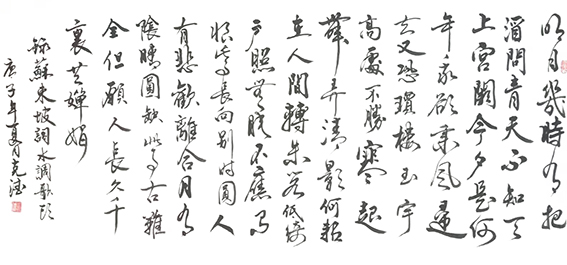 明月幾時有把
酒問青天不知天
上宮闕今夕是何
年我欲乘風歸
去又恐瓊樓玉宇
高處不勝寒起
舞弄清影何似
在人間轉朱閣低綺
戶照無眠不應有
恨何事長向別時圓人
有悲歡離合月有
陰晴圓缺此事古難
全但願人長久千
裏共嬋娟
錄蘇東坡詞水調歌頭
庚子年夏月